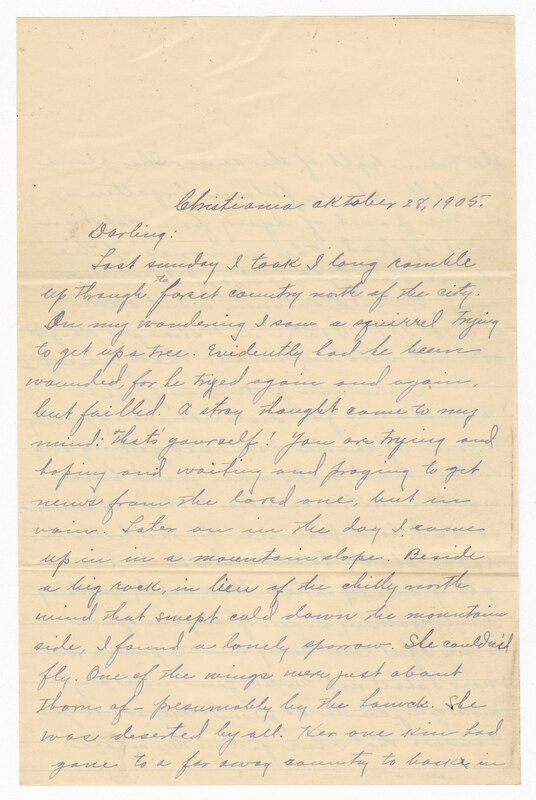 Christiania oktober 28, 1905.
Darling:
Last sunday I took I long ramble
up through to forest country north of the city.
On my wandering I saw a squirrel trying
to get up a tree. Evidently had he been
wounded, for he tryed again and again,
but failled. A stray thought came to my
mind: "thats yourself! You are trying and
hoping and waiting and praying to get
news from the loved one, but in
vain. Later on in the day I came
up in in a mountain slope. Beside
a big rock, in lieu of the chilly north
wind that swept cold down the mountain
side, I found a lonely sparrow. She could'nt
fly. One of the wings were just about
thorn of - presumably by the hawck. She
was deserted by all. Her one kin had
gone to a far away country to bask in